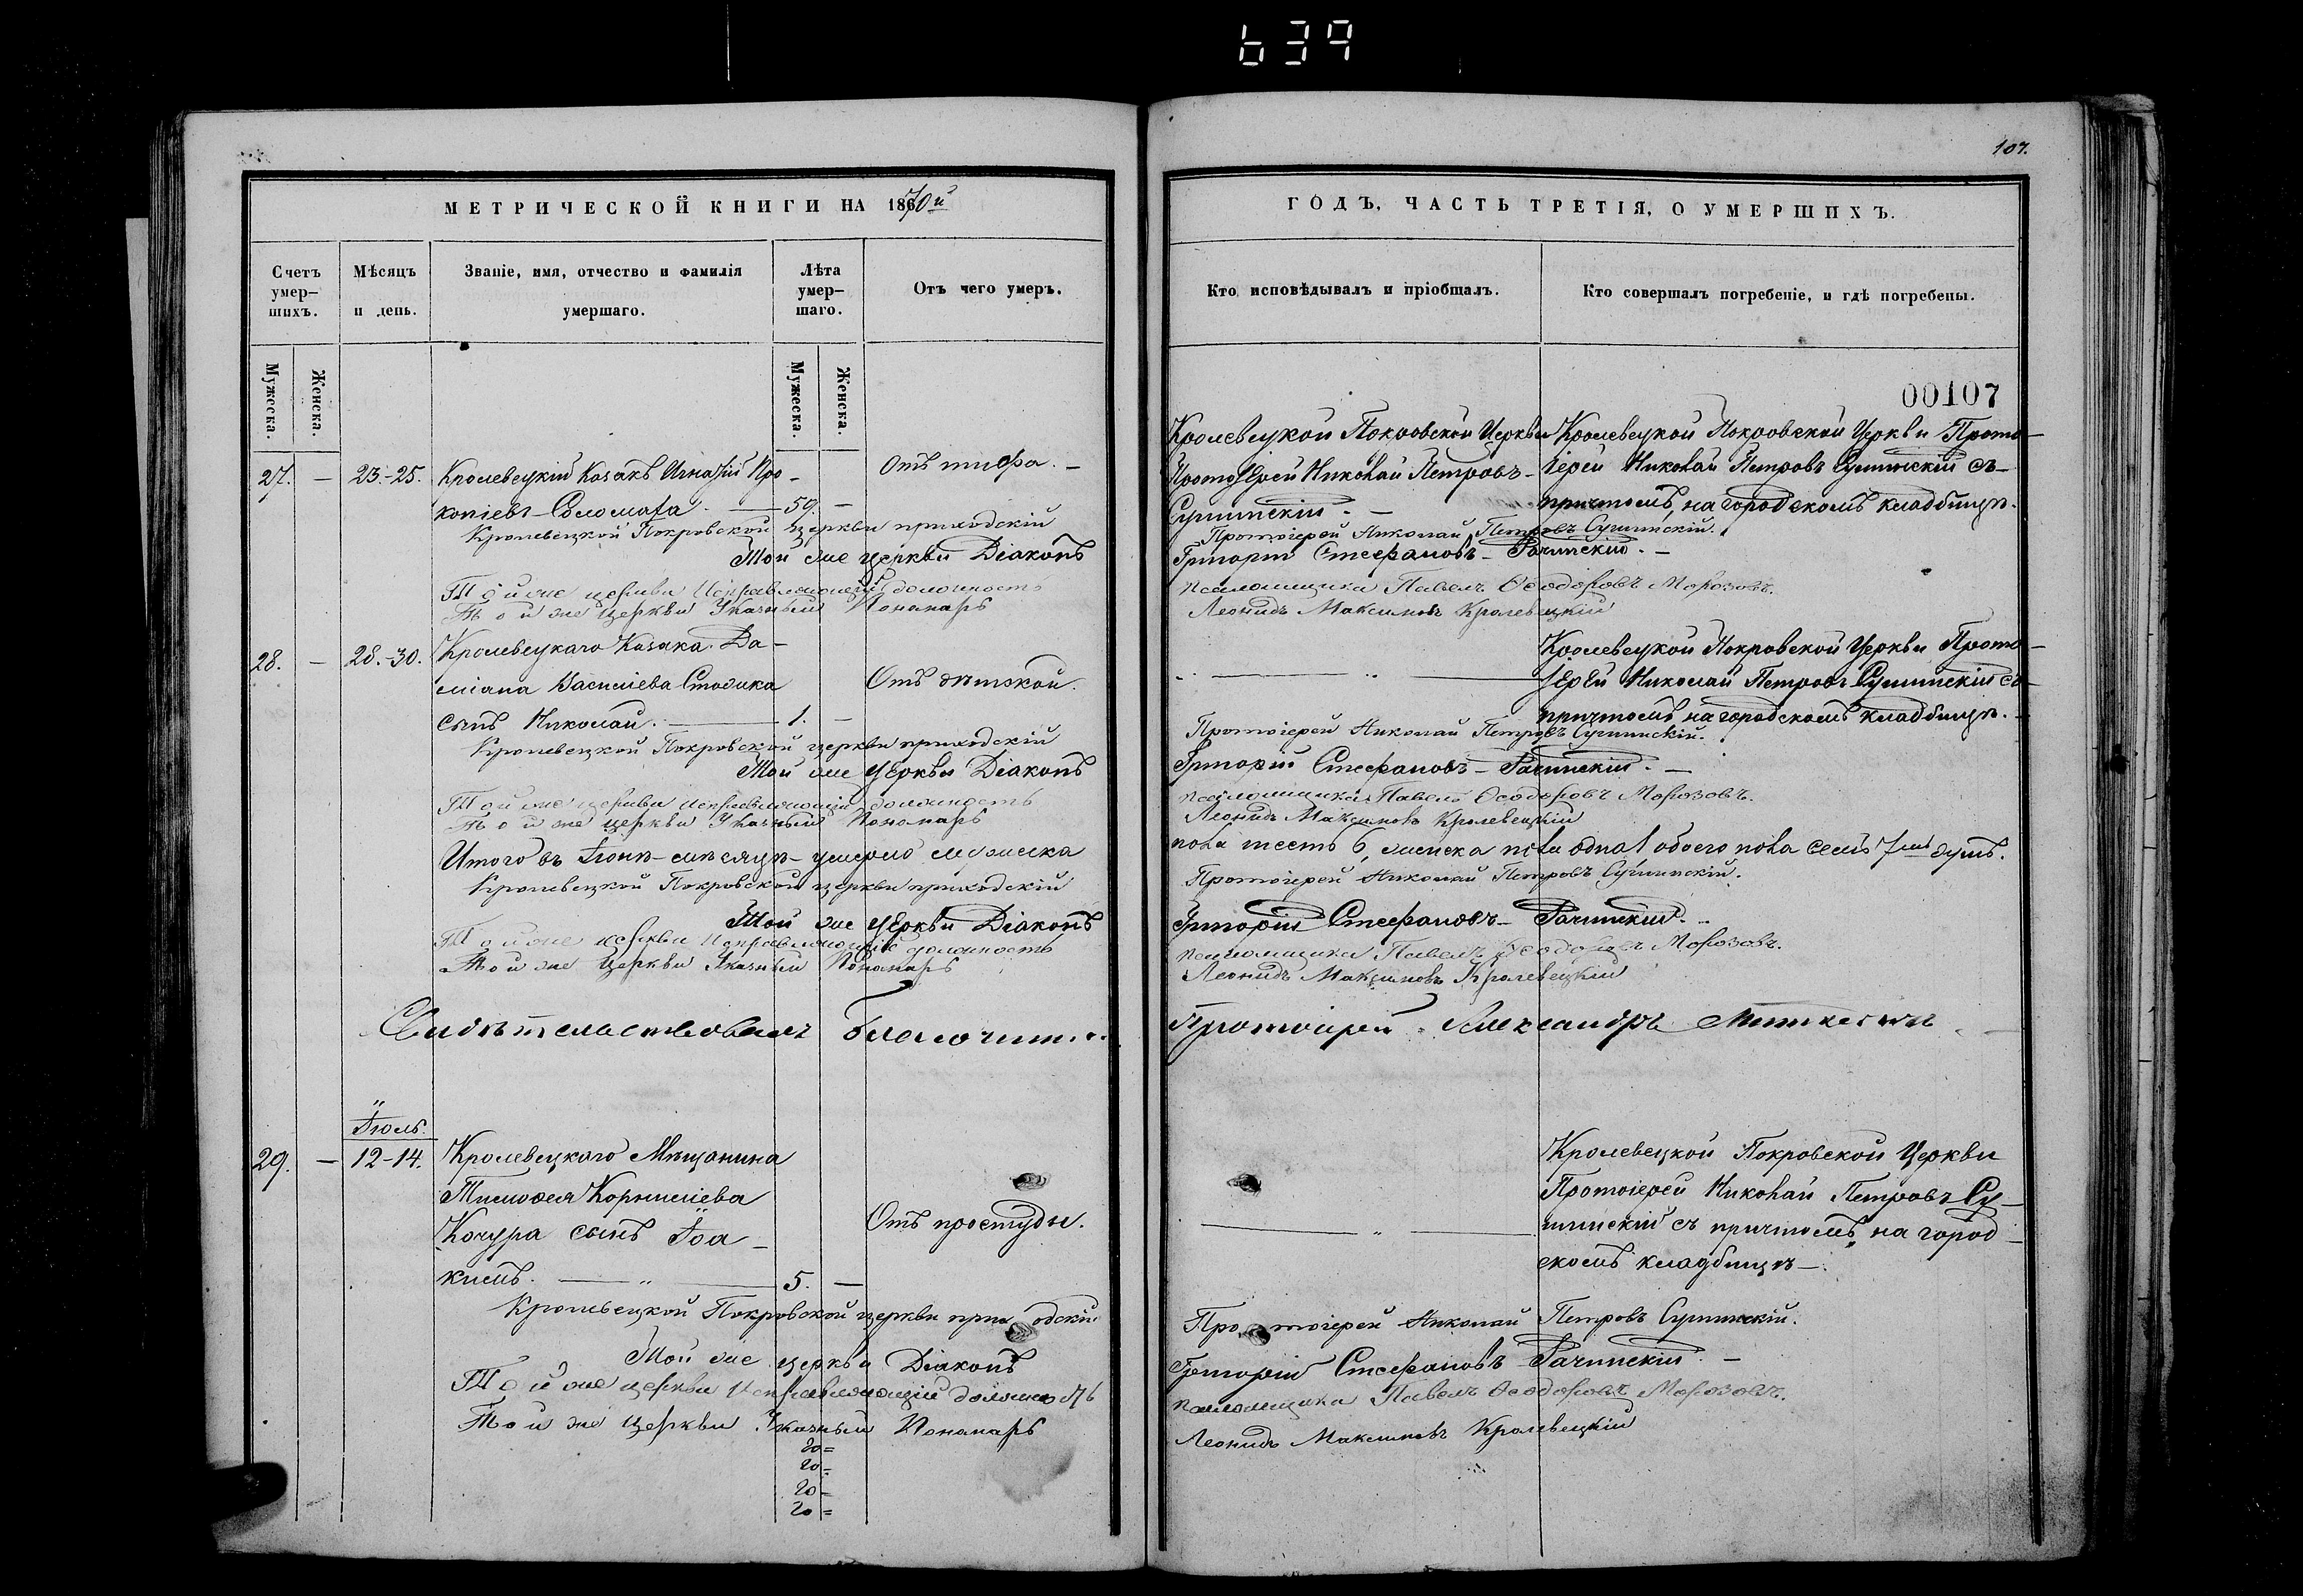 639
107.
МЕТРИЧЕСКОЙ КНИГИ НА 1870й
ГОДЪ, ЧАСТЬ ТРЕТІЯ, О УМЕРШИХЪ.
Счетъ умер-шихъ.
Мѣсяцъ и день.
Званіе, имя, отчество и фамилія умершаго.
Лѣта умер-шаго.
Отъ чего умеръ.
Кто исповѣдывалъ и пріобщалъ.
Кто совершалъ погребеніе, и гдѣ погребены.
Мужеска.
Женска.
Мужеска.
Женска.
00107
27. — 23.-25. Кролевецкій Козакъ Игнатій Про-
копіевъ Соломаха. — 59. —
Отъ тифа. —
Кролевецкой Покровской Церкви
Протоіерей Николай Петровъ
Сушинскій. —
Кролевецкой Покровской Церкви Прото-
іерей Николай Петровъ Сушинскій съ
причтомъ, на городскомъ кладбищѣ.
Кролевецкой Покровской церкви приходскій Протоіерей Николай Петровъ Сушинскій.
Той же церкви Діаконъ Григорій Стефановъ Рачинскій. —
Той же церкви Исправляющій должность псаломщика Павелъ Ѳеодоровъ Морозовъ.
Той же Церкви Указный Пономарь Леонидъ Максимовъ Кролевецкій
28. — 28.-30. Кролевецкаго Козака Да-
міана Василіева
сынъ Николай. — 1. —
Отъ дѣтской.
Кролевецкой Покровской Церкви Прото-
іерей Николай Петровъ Сушинскій съ
причтомъ, на городскомъ кладбищѣ.
Кролевецкой Покровской церкви приходскій Протоіерей Николай Петровъ Сушинскій.
Той же Церкви Діаконъ Григорій Стефановъ Рачинскій. —
Той же церкви исправляющій должность псаломщика Павелъ Ѳеодоровъ Морозовъ.
Той же церкви Указный Пономарь Леонидъ Максимовъ Кролевецкій
Итого въ Іюнѣ мѣсяцѣ умерло мужеска пола шесть 6, женска пола одна 1 обоего пола семь 7мь душъ.
Кролевецкой Покровской церкви приходскій Протоіерей Николай Петровъ Сушинскій.
Той же Церкви Діаконъ Григорій Стефановъ Рачинскій. —
Той же церкви Исправляющій должность псаломщика Павелъ Ѳеодоровъ Морозовъ.
Той же Церкви Указный Пономарь Леонидъ Максимовъ Кролевецкій
Свидѣтельствовалъ Протоіерей Александръ
Іюль.
29. — 12-14. Кролевецкаго Мѣщанина
Тимоѳея Корниліева
Кочура сынъ Іоа-
кимъ. — 5. —
Отъ простуды.
Кролевецкой Покровской Церкви
Протоіерей Николай Петровъ Су-
шинскій съ причтомъ, на город-
скомъ кладбищѣ —.
Кролевецкой Покровской церкви приходскій Протоіерей Николай Петровъ Сушинскій.
Той же церкви Діаконъ Григорій Стефановъ Рачинскій. —
Той же церкви Исправляющій должность псаломщика Павелъ Ѳеодоровъ Морозовъ.
Той же Церкви Указный Пономарь Леонидъ Максимовъ Кролевецкій
20 =
20 =
20 =
20 =